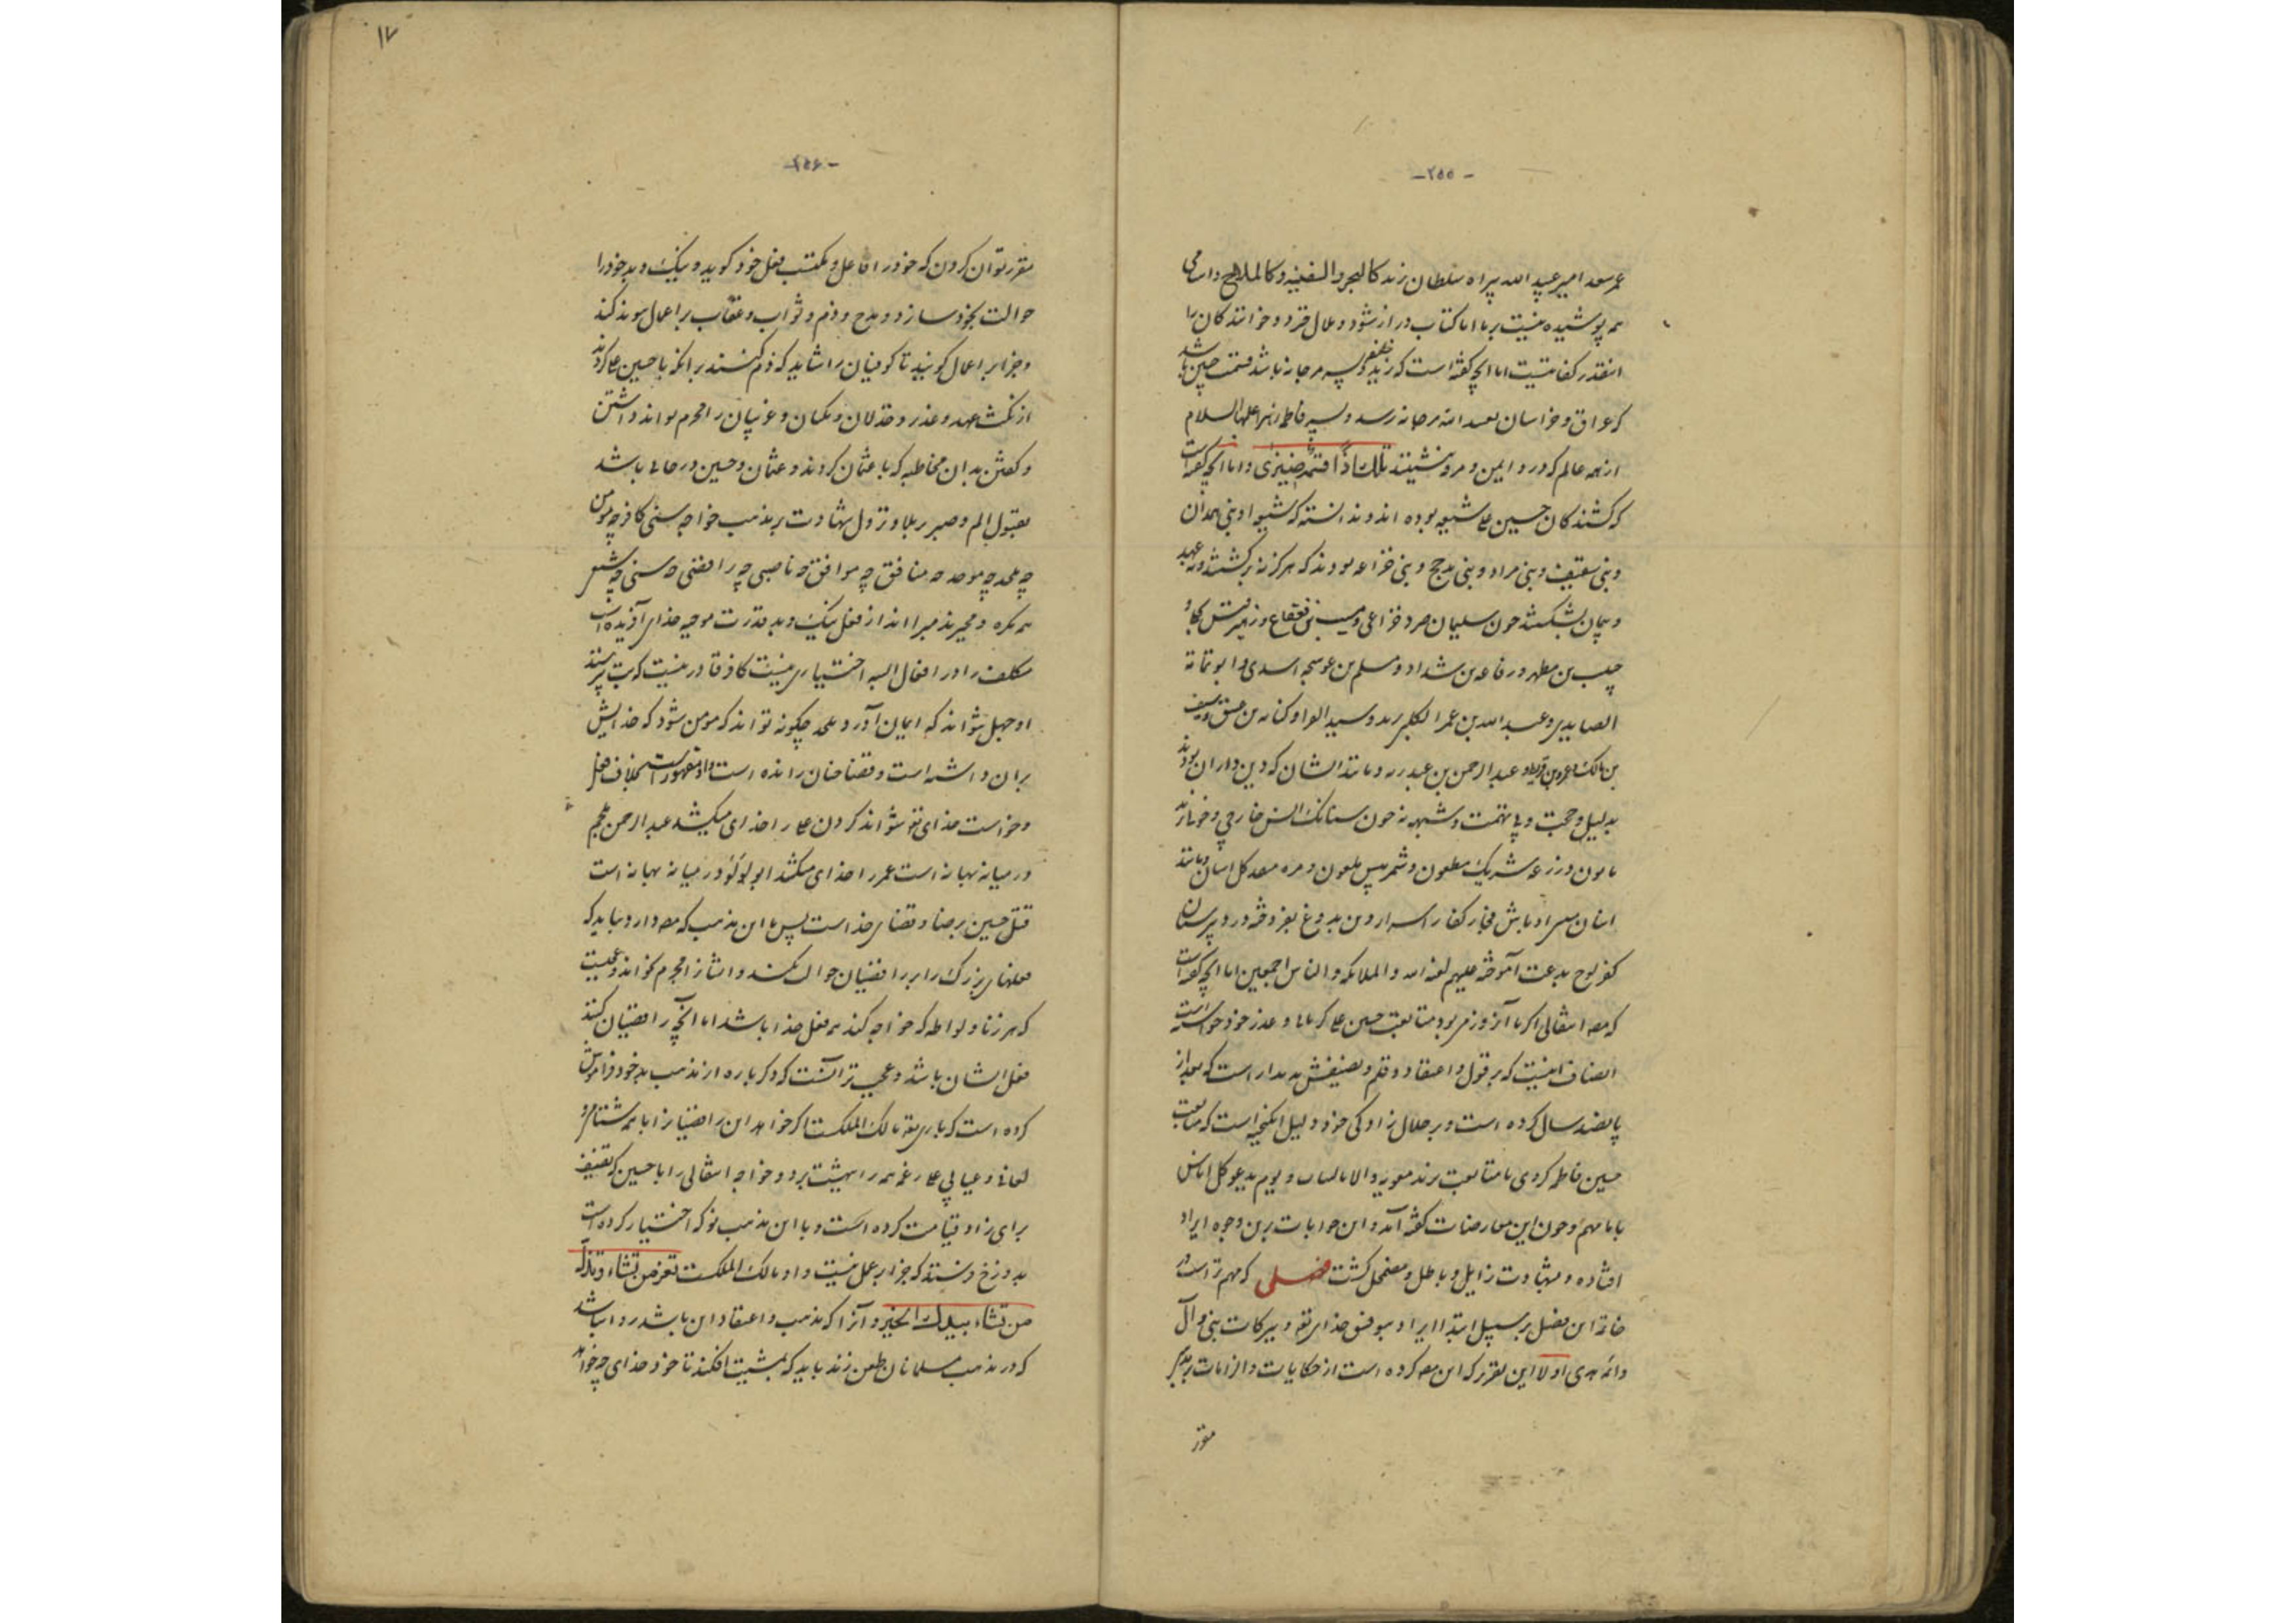 -۲۵۵-
عمر سعد امیر عبید الله براه سلطان زند کالبحر والسفینه و کالملاح و اسامی
همه پوشیده نیست بر ما اما کتاب دراز شود و ملال فزود و خوانندگان را
اینقدر کفایتست اما آنچه گفته است که یزید خلیفه و پسر مرجانه باشد قسمت چنین باشد
که عراق و خراسان بعبد الله مرجانه رسد و پسر فاطمه زهرا علیها السلام
از همه عالم کو رود ایمن و مرو بنشیند تلک اذا قسمة ضیزی و اما آنچه گفته است
که کشندگان حسین علی شیعه بوده اند و ندانسته که شیعه او بنی همدان
و بنی سقیف و بنی مراد و بنی مذحج و بنی خزاعه بودند که هرگز نه برگشتند و نه عهد
و پیمان بشکستند چون سلیمان صرد خزاعی و مسیب بن قعقاع و زهیر قیس بجلی و
حبیب بن مطهر و رفاعه بن شداد و مسلم بن عوسجه اسدی و ابو ثمامه
الصایدی و عبد الله بن عمر الکلبی
بن مالک و عبد الرحمن بن عبد ربه و مانند ایشان که دین داران بودند
بدلیل و حجت و بی تهمت و شبهه نه چون سنانک انس خارجی و
و زرعه شریک مطعون و شمر پیس ملعون و
کفر لوح بدعت آموخته علیهم لعنة الله و الملائکه و الناس اجمعین اما آنچه گفته است
که مصنف انتقالی اگر با آن روز مر بود متابعت حسین علی کردی و عذر خود خواسته است
انصاف اینست که بر قول و اعتقاد و قلم و تصنیفش پدیدار است که بعد از
پانصد سال کرده است و بر حلال زادگی خود دلیل انگیخته است که متابعت
حسین فاطمه کردی یا متابعت یزید معویه و الا و یوم یدعو کل اناس
بامامهم و چون این معارضات گفته آمد و این جوابات برین وجه ایراد
افتاده و شبهات زایل و باطل و مضمحل گشت فصلی که مهم تر است در
خاتمه این فصل بر سبیل ابتدا ایراد بتوفیق خدای تع و ببرکات نبی و آل
و ائمه هدی اولا این تقریر که این مصنف کرده است از حکایات و الزامات بر مذهب جبر
مقرر
۱۷
-۲۵۶-
مقرر توان کردن که خود را فاعل و مکتسب فعل خود گوید و نیک و بد خود را
حوالت بخود سازد و مدح و ذم و ثواب و عقاب بر اعمال پیوند کند
و جزا بر اعمال گویند تا کوفیان را شاید که ذم کنند بر آنکه با حسین علی کردند
از نکث عهد و غدر و خذلان و مکیان و غزیان را مجرم تواند داشتن
و گفتن بدان مخاطبه که با عثمان کردند و عثمان و حسین در حالی باشد
بقبول الم و صبر بر بلا و نزول شهادت بر مذهب خواجه سنی کافر چه مومن
چه ملحد چه موحد چه منافق چه موافق چه ناصبی چه رافضی چه سنی چه شیعی
همه مکره و مجبرند مبرا اند از فعل نیک و بد قدرت موجبه خدای آفریده است
مکلف را در افعال البته اختیاری نیست کافر قادر نیست که بت نپرستد
بو جهل نتواند که ایمان آورد ملحد چگونه تواند که مومن شود که خدایش
بران داشته است و قضا چنان رانده است و او مقهور است بخلاف فعل
و خواست خدای تع نتواند کردن علی را خدای میکشد عبد الرحمن ملجم
در میانه بهانه است عمر را خدای میکشد ابو لؤلؤ در میانه بهانه است
قتل حسین برضا و قضای خداست پس با این مذهب که مصنف دارد نباید که
فعلهای بزرگ را بر رافضیان حوالت کند و ایشانرا مجرم خواند و عجبست
که هر زنا و لواطه که خواجه کند همه فعل خدا باشد اما آنچه رافضیان کنند
فعل ایشان باشد و عجب تر آنست که دگر باره از مذهب بد خود فراموش
کرده است که باری تع مالک الملکست اگر خواهد این رافضیانرا با همه شتامی و
لعانی و عیابی علی رغم همه را بهشت برد و خواجه انتقالی را با حسین که تصنیف
برای زاد قیامت کرده است و با این مذهب نو که اختیار کرده است
بدوزخ فرستد که جزا بر عمل نیست و او مالک الملکست تعز من تشاء و تذل
من تشاء بیدک الخیر و آنرا که مذهب و اعتقاد این باشد روا نباشد
که در مذهب مسلمانان طعن زند باید که بمشیت افکند تا خود خدای چه خواهد